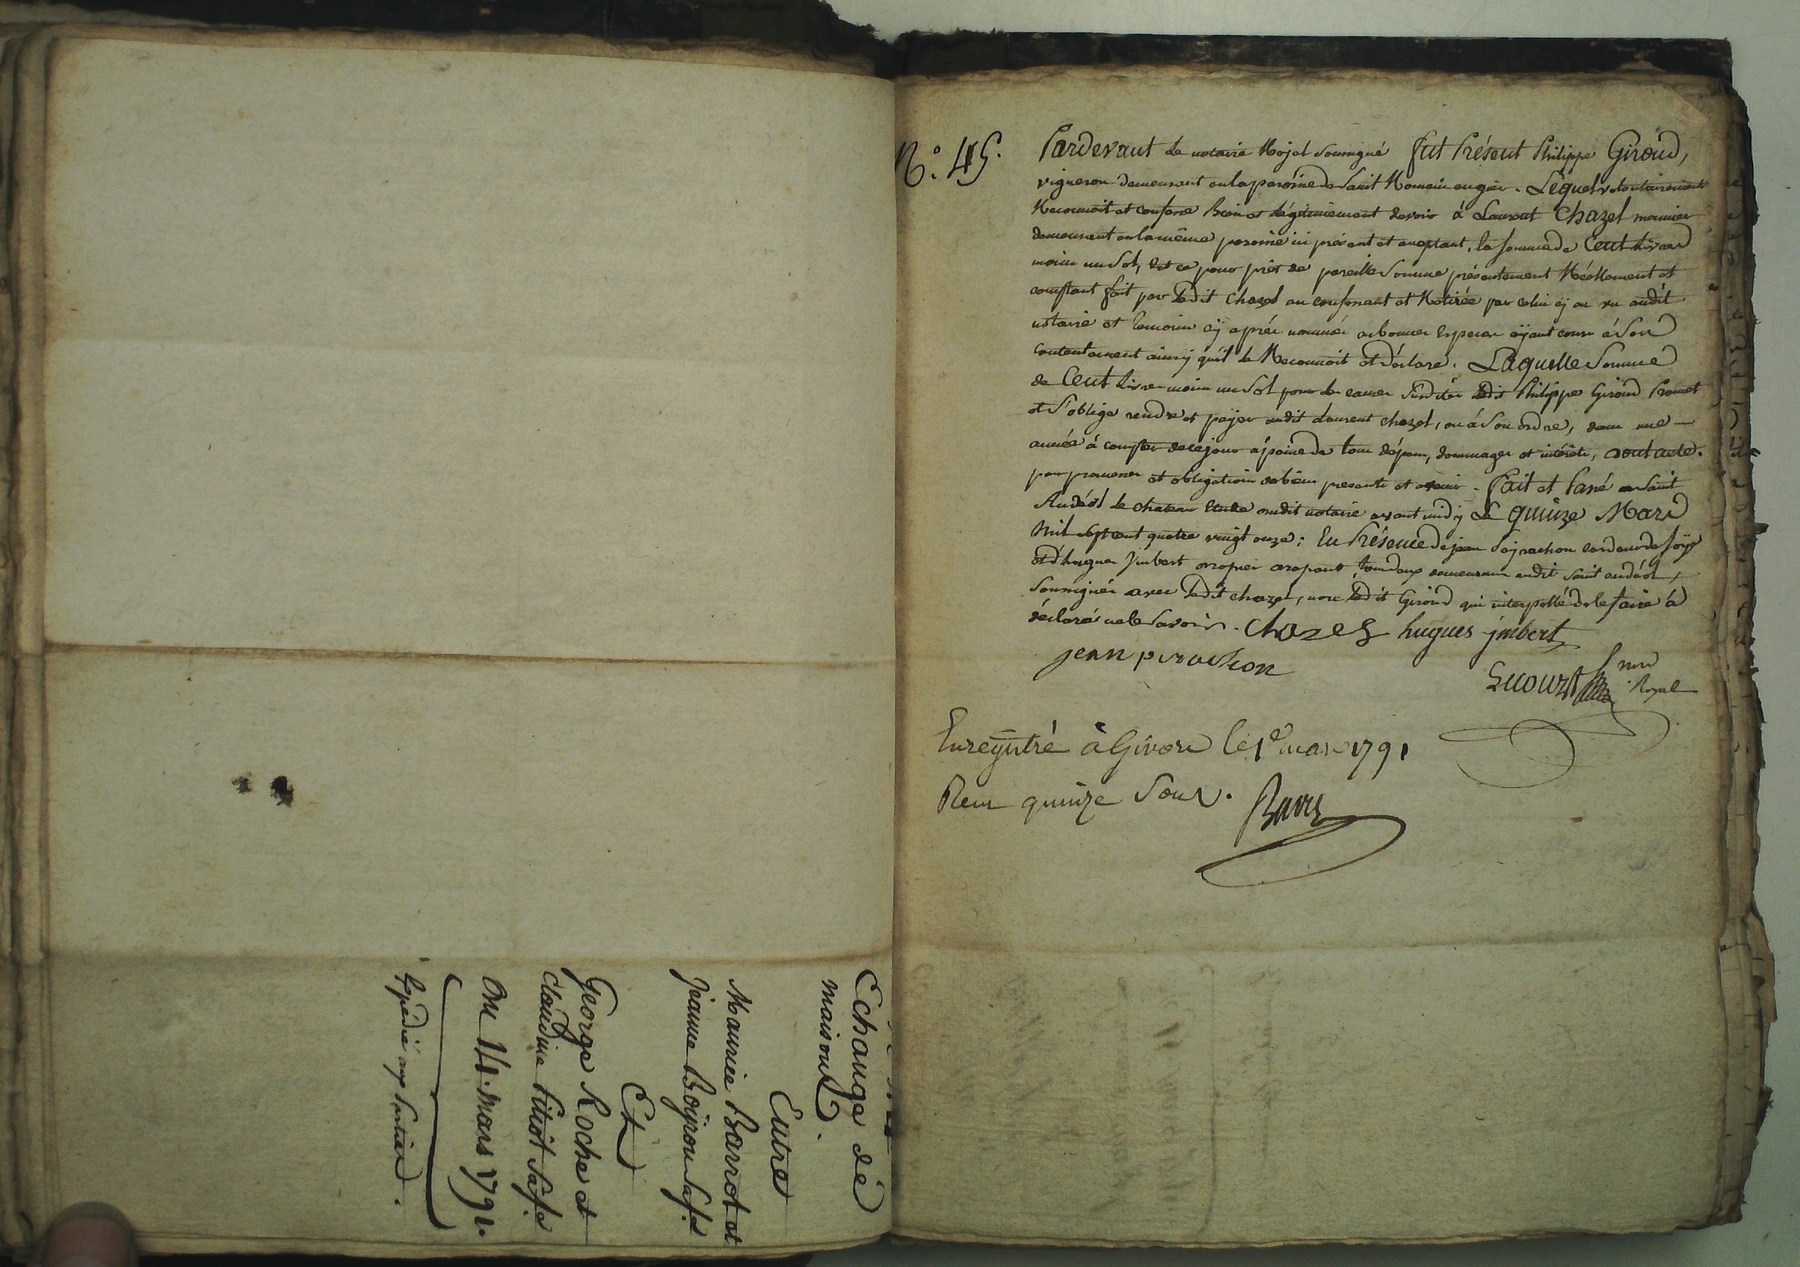 Echange dé
maison.
Entre
Maurice Barrot et
Jeanne Boijrou sa f.e
Et
George Roche et
Claudine Pitiot sa f.e
Du 14. mars 1791.
Expédié aux parties.
N.° 45.
Pardevant Le notaire Royal soussigné fut Présent Philippe Giroud,
vigneron demeurant en la paroisse de Saint Romain en gier. Lequel volontairement
Reconnoit et confesse Bien et légitimement devoir à Laurent Chazel meunier
demeurant en la même paroisse ici présent et aceptant, la somme de Cent Livres
moins un sol, Et ce pour prêt de pareille somme présentement Réellement et
comptant fait par Ledit Chazel au confessant et Retirée par celui cy au vu dudit
notaire et temoins cy après nommés en bonnes Especes ayant cours à son
contentement ainsy qu'il le Reconnoit et déclare. Laquelle somme
de Cent Livres moins un sol pour les causes susdites Ledit Philippe Giroud Promet
et s'oblige rendre et payer audit Laurent Chazel, ou à son ordre, dans une
année à compter de ce jour à peine de tous dépens, dommages et intérêts, dont acte.
par promesses et obligations de biens presents et avenir. Fait et Passé à Saint
Andéol le chateau Etude dudit notaire avant midy Le quinze Mars
Mil sept cent quatre vingt onze; En Présence de jean Peyrachon cardeur de soye
et d'hugues Jmbert tous deux demeurans audit Saint andéol,
soussignés avec Ledit chazel, non Ledit Giroud qui interpellé de le faire à
déclaré ne le savoir. Chazel hugues jmbert
jean pirachon
not.re
Royal
Enregistré à Givors le mars 1791
Reçu quinze sous.